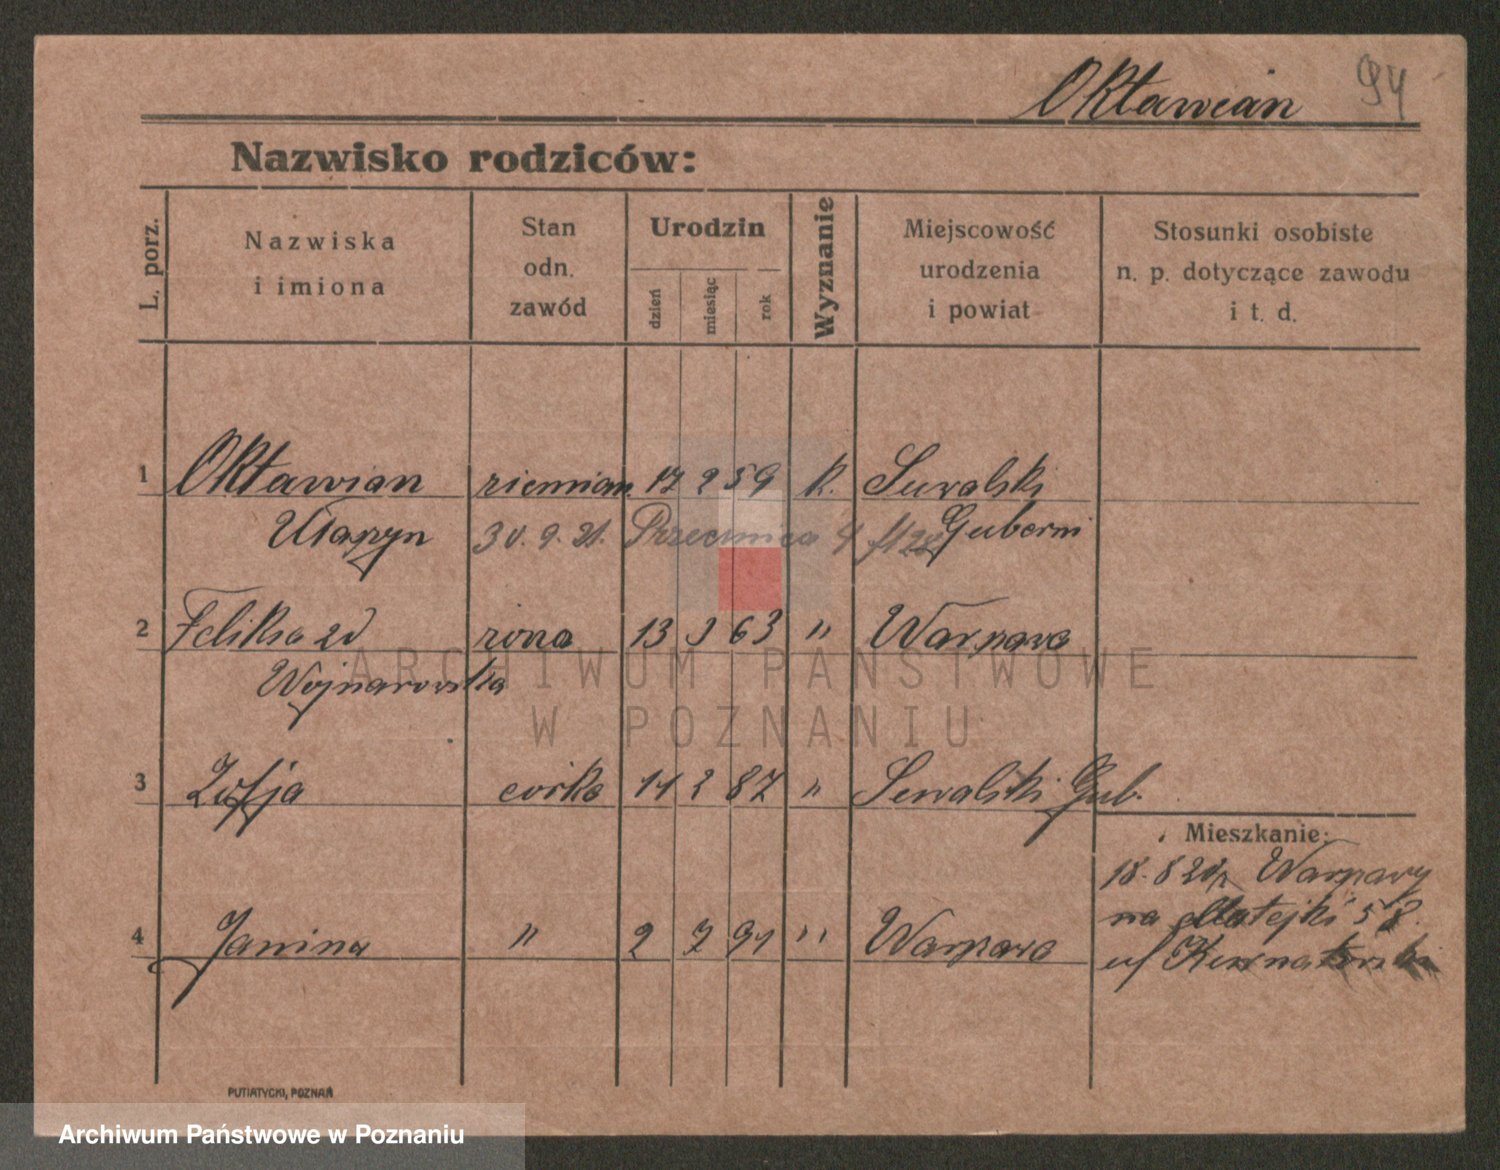 Oktawian 94
Nazwisko rodziców:
L. porz.
Nazwiska
i imiona
Stan
odn.
zawód
Urodzin
dzień
miesiąc
rok
Wyznanie
Miejscowość
urodzenia
i powiat
Stosunki osobiste
n. p. dotyczące zawodu
i t. d.
1 Oktawian ziemian. 17 2 59 k. Suwalski
Ułasyn 30. 9. 21. Przecznica 4 Guberni
2 Feliksa zd żona 13 3 63 " Warszawa
Wojnarowska
3 Zofja córka 14 2 87 " Suwalski Gub.
Mieszkanie:
18. 8 20 z Warszawy
na Matejki 58.
4 Janina " 2 7 91 " Warszawa
u/
PUTIATYCKI, POZNAŃ
ARCHIWUM PAŃSTWOWE
W POZNANIU
Archiwum Państwowe w Poznaniu